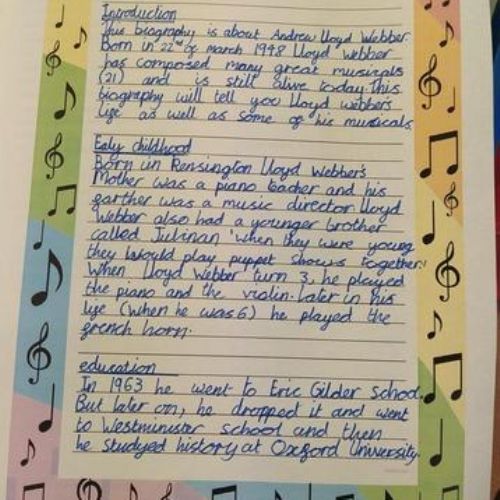 Introduction
This biography is about Andrew Lloyd Webber.
Born in 22nd of march 1948 Lloyd webber
has composed many great musicals
(21) and is still alive today. This
biography will tell you Lloyd webbers
life as well as some of his musicals.
Ealy childhood
Born in Kensington Lloyd Webber's
Mother was a piano teacher and his
farther was a music director. Lloyd
Webber also had a younger brother
called Julinan 'when they were young
they would play puppet shows together.'
When Lloyd Webber turn 3, he played
the piano and the violin. Later in his
life (when he was 6) he played the
french horn.
education
In 1963 he went to Eric Gilder school.
But later on, he dropped it and went
to Westminuster school and then
he studyed history at Oxford University.